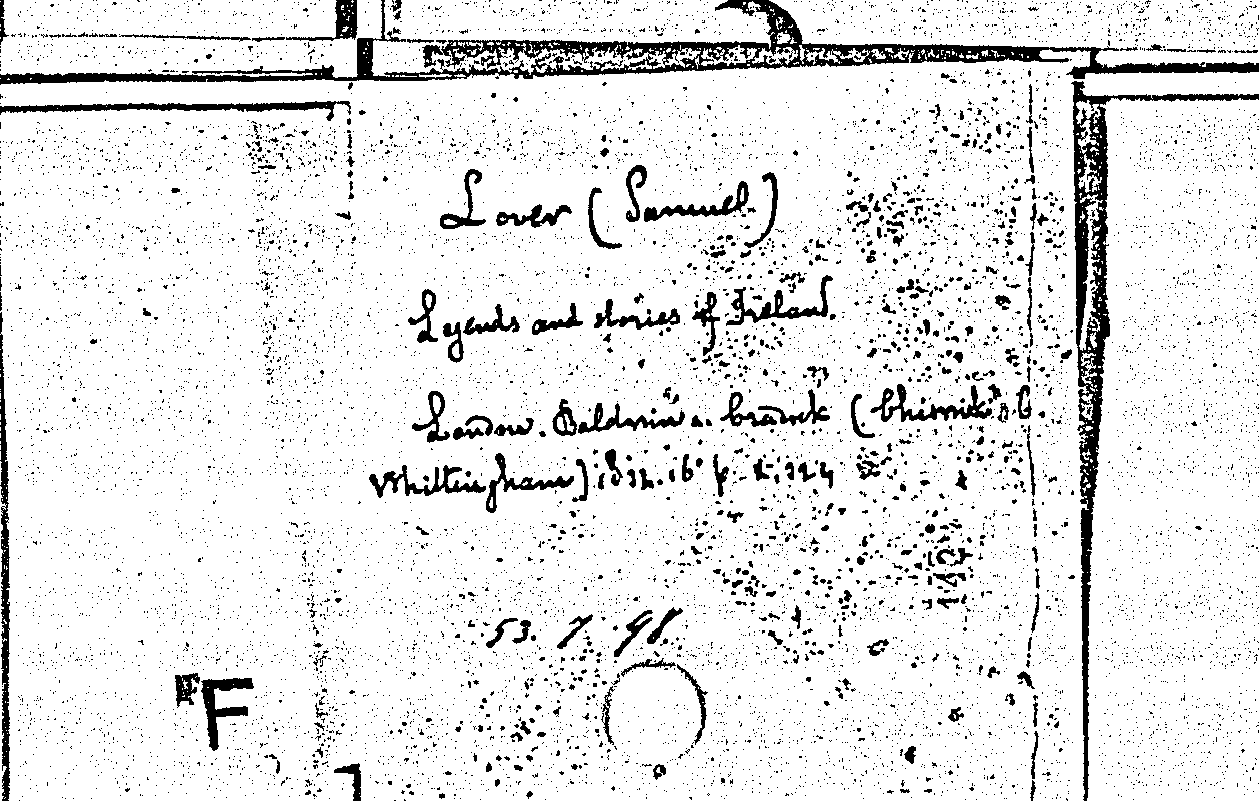 Lover (Samuel)
Legends and stories of Ireland.
London. Baldwin a. Cradock (Chiswick: C.
Whittingham) 1832. 16° p. X, 324
142
53. 7. 98
F